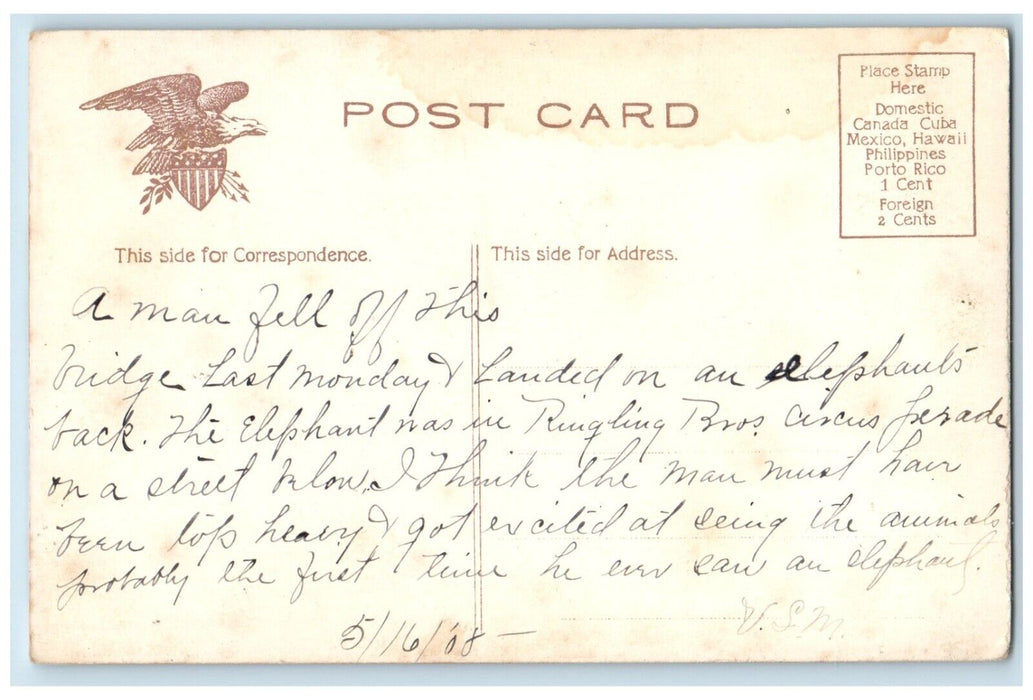 POST CARD
Place Stamp
Here
Domestic
Canada Cuba
Mexico, Hawaii
Philippines
Porto Rico
1 Cent
Foreign
2 Cents
This side for Correspondence.
This side for Address.
A man fell off this
bridge last monday & landed on an elephants
back. The Elephant was in Ringling Bros. circus perade
on a street below. I think the man must have
been top heavy & got excited at seing the animals
probably the first time he ever saw an elephant.
V.S.M.
5/16/'08 —